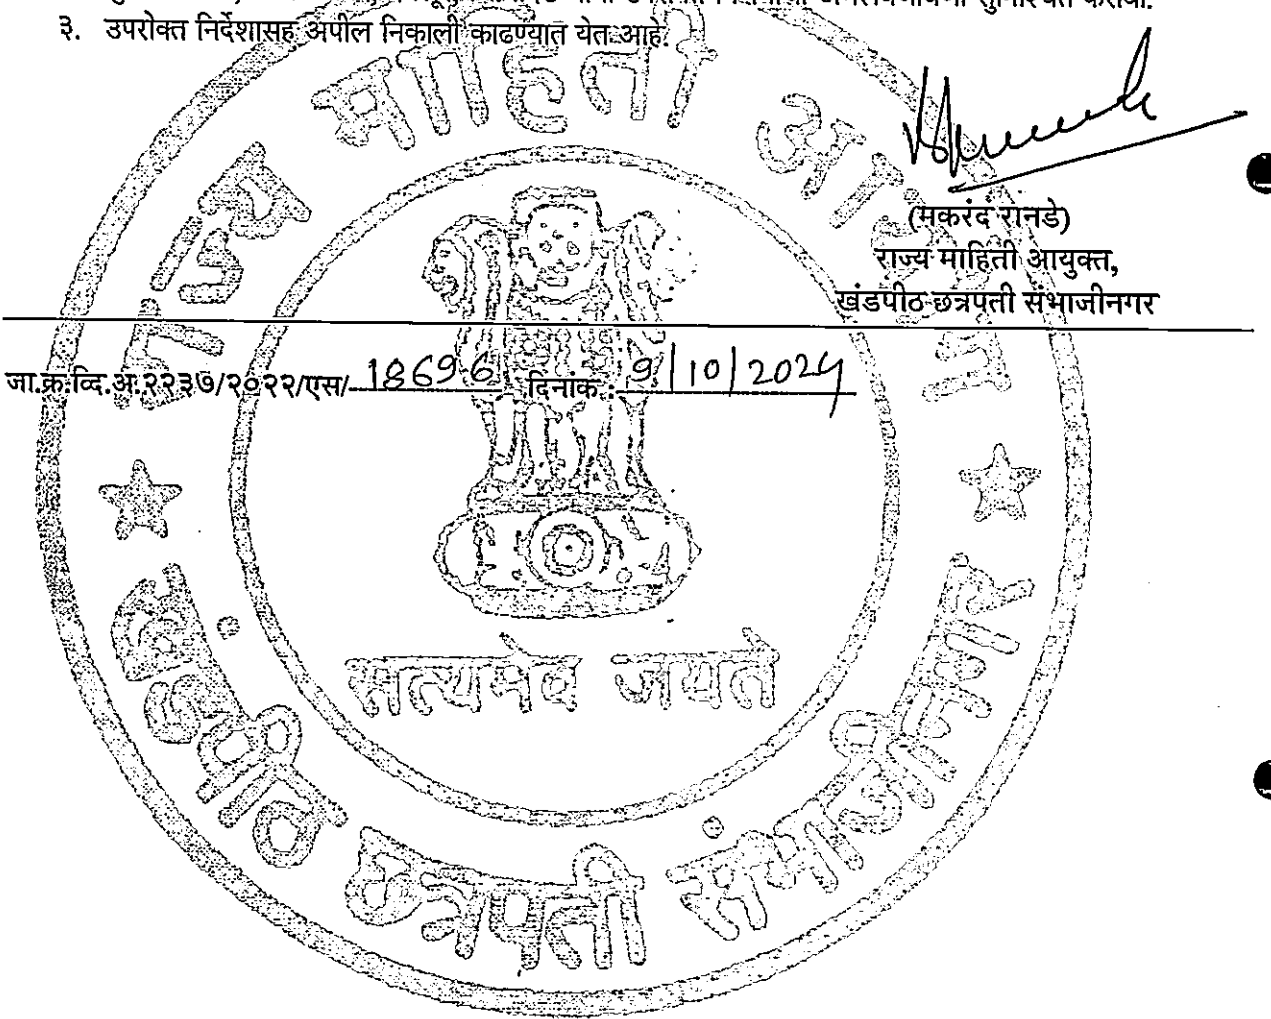 सुनिश्चित करावी.
३. उपरोक्त निर्देशासह अपील निकाली काढण्यात येत आहे.
(मकरंद रानडे)
राज्य माहिती आयुक्त,
खंडपीठ छत्रपती संभाजीनगर
जा.क्र.व्दि.अ.२२३७/२०२२/एस/ 18696 दिनांक : 9/10/2024
राज्य माहिती आयोग
सत्यमेव जयते
खंडपीठ छत्रपती संभाजीनगर